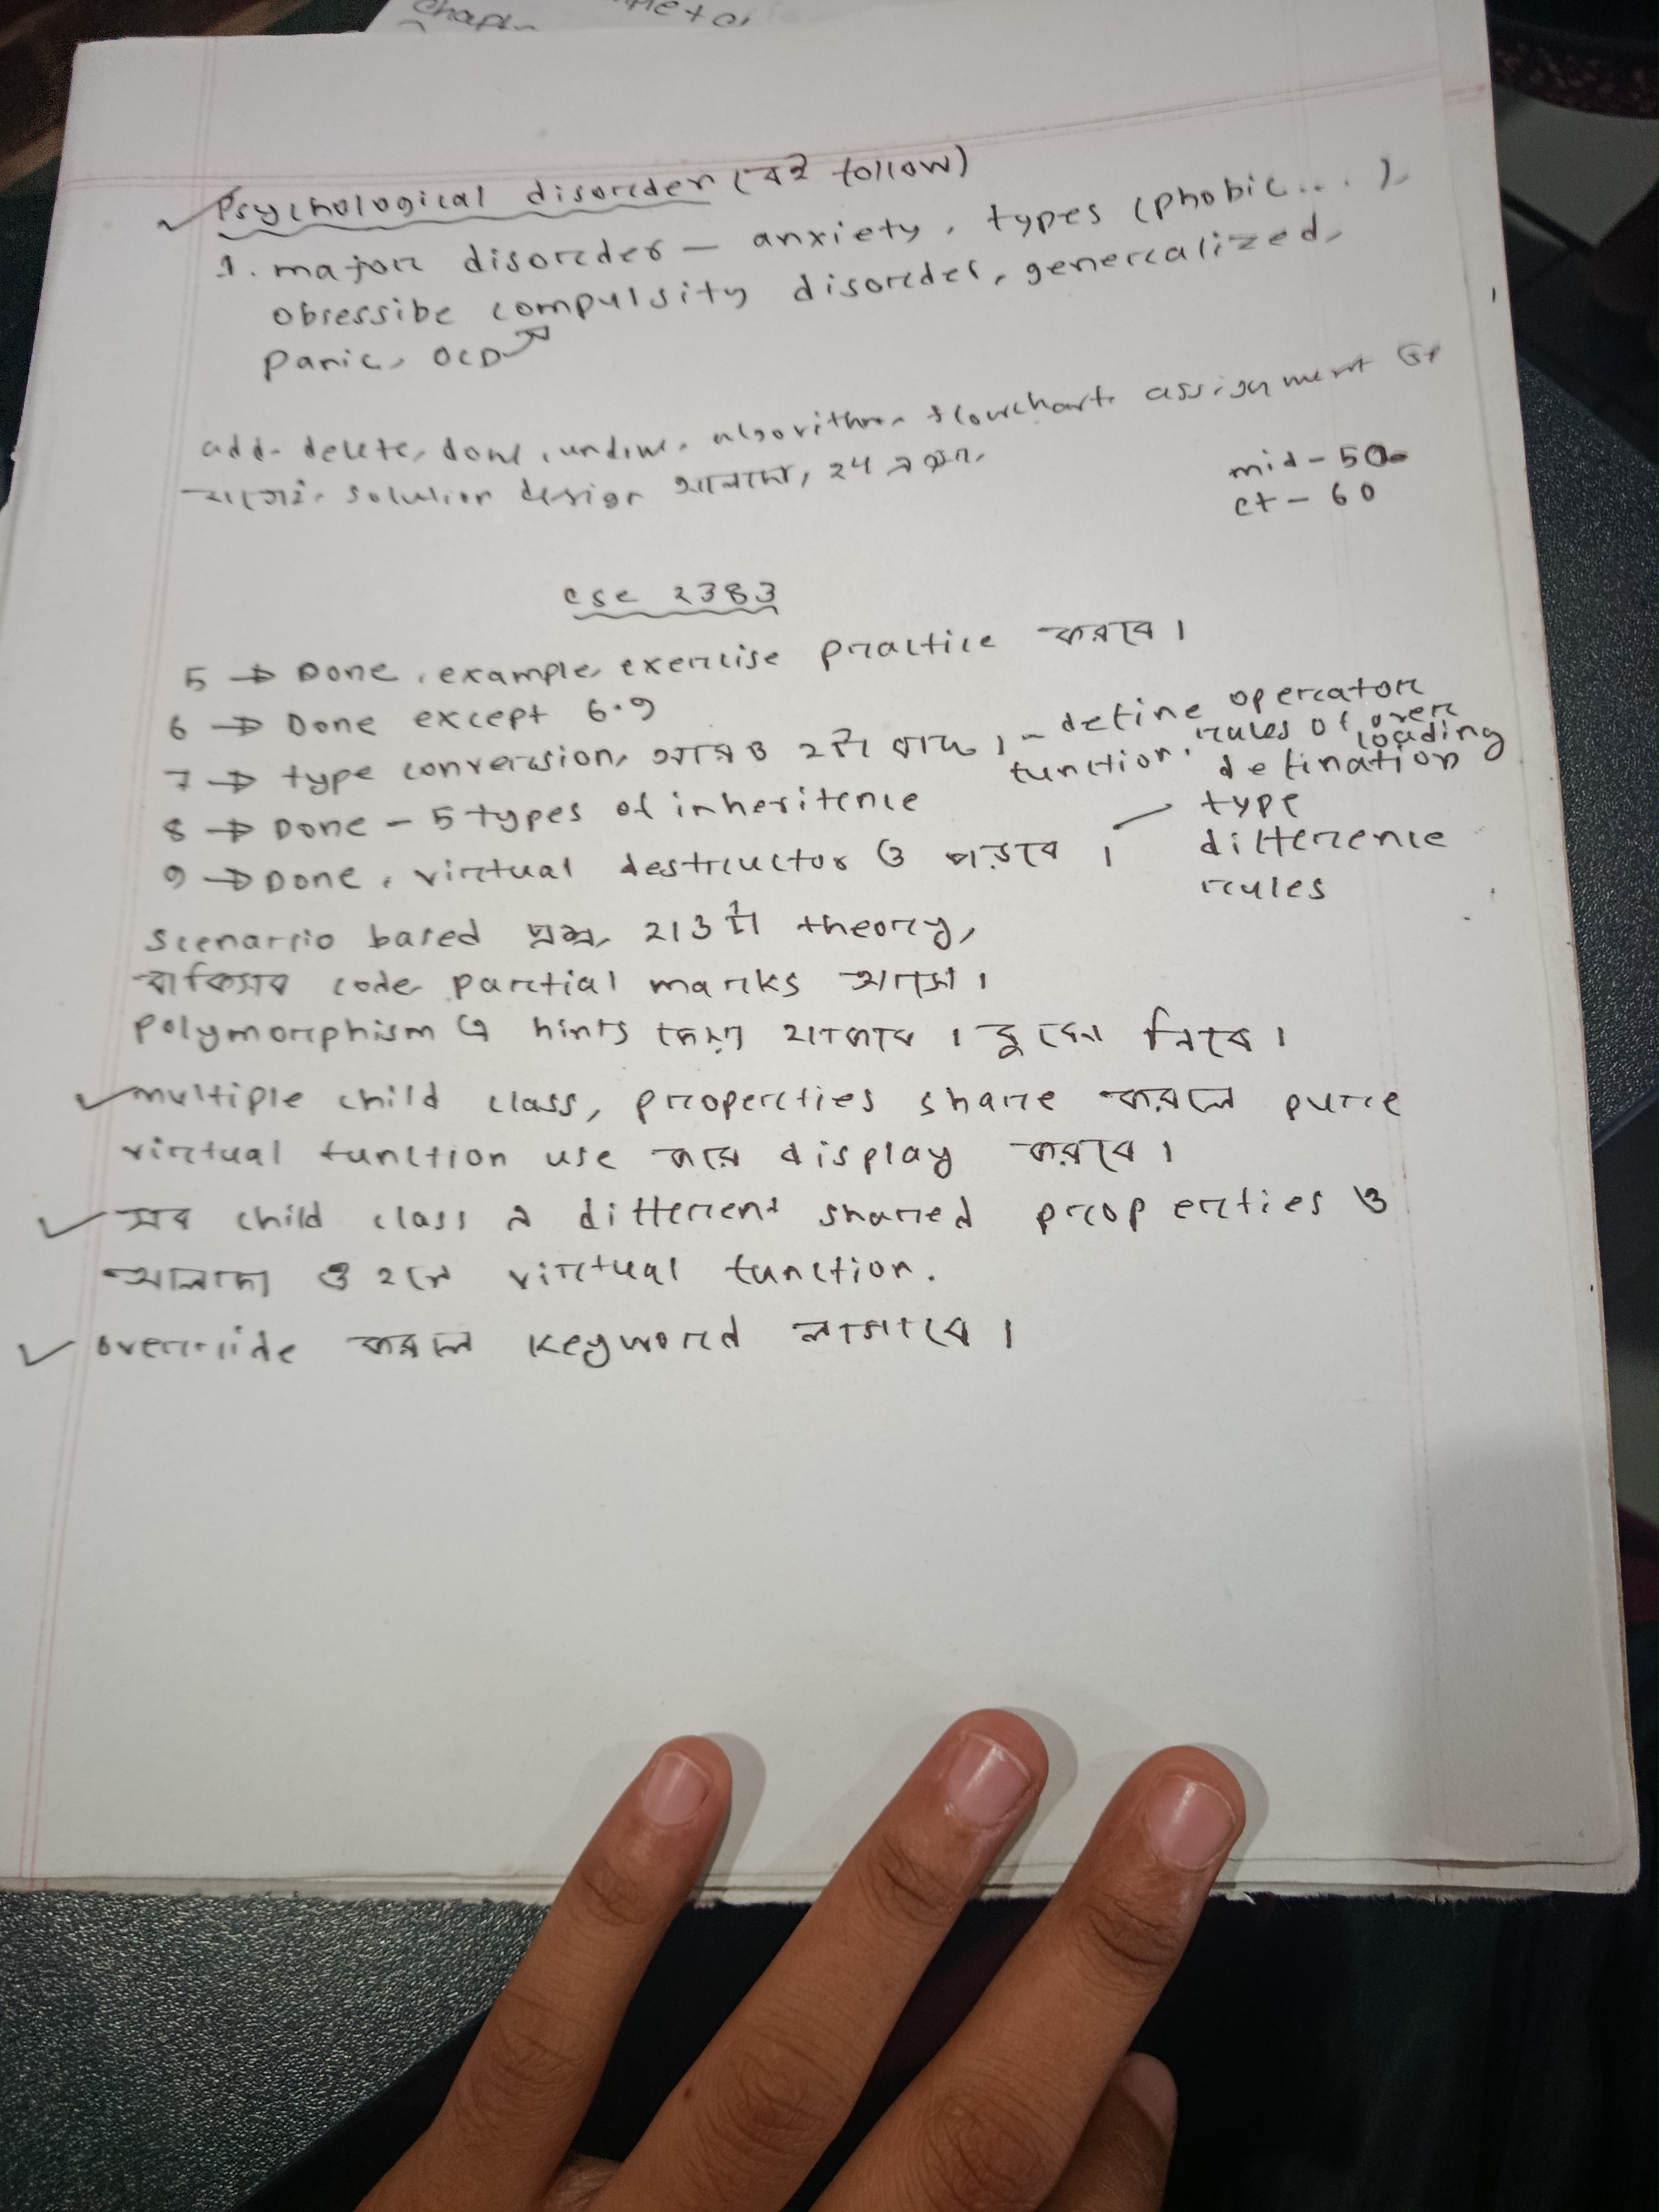 Psychological disorder (বই follow)
1. major disorder — anxiety, types (phobic...),
obsessibe compulsity disorder, generalized,
panic, OCD
add, delete, done, undone, algorithm flowchart assignment এর
solution design আলাদা, 24
mid - 50
ct - 60
cse 2383
5 → Done, example, exercise practice করবে।
6 → Done except 6.9
7 → type conversion, আরও ২টা বাদ। - define operator
function, rules of over
loading
defination
8 → Done - 5 types of inheritence
9 → Done, virtual destructor ও পড়বে।
type
difference
rules
scenario based প্রশ্ন, 2/3 টা theory,
বাকিসব code, partial marks আছে।
Polymorphism এ hints দেয়া থাকবে। বুঝে নিবে।
multiple child class, properties share করলে pure
virtual function use করে display করবে।
সব child class এ different shared properties ও
আলাদা ও হলে virtual function.
override করলে keyword লাগাবে।